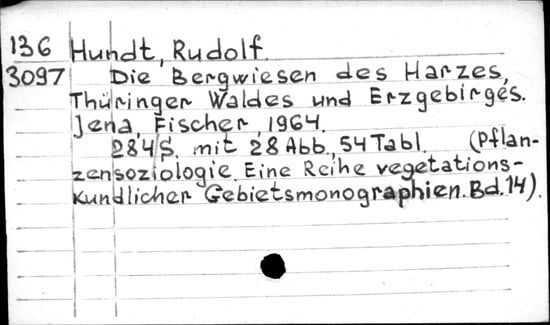 136 Hundt, Rudolf.
3097 Die Bergwiesen des Harzes,
Thüringer Waldes und Erzgebirges.
Jena, Fischer, 1964.
284 S. mit 28 Abb., 54 Tabl. (Pflan-
zensoziologie. Eine Reihe vegetations-
kundlicher Gebietsmonographien. Bd. 14).